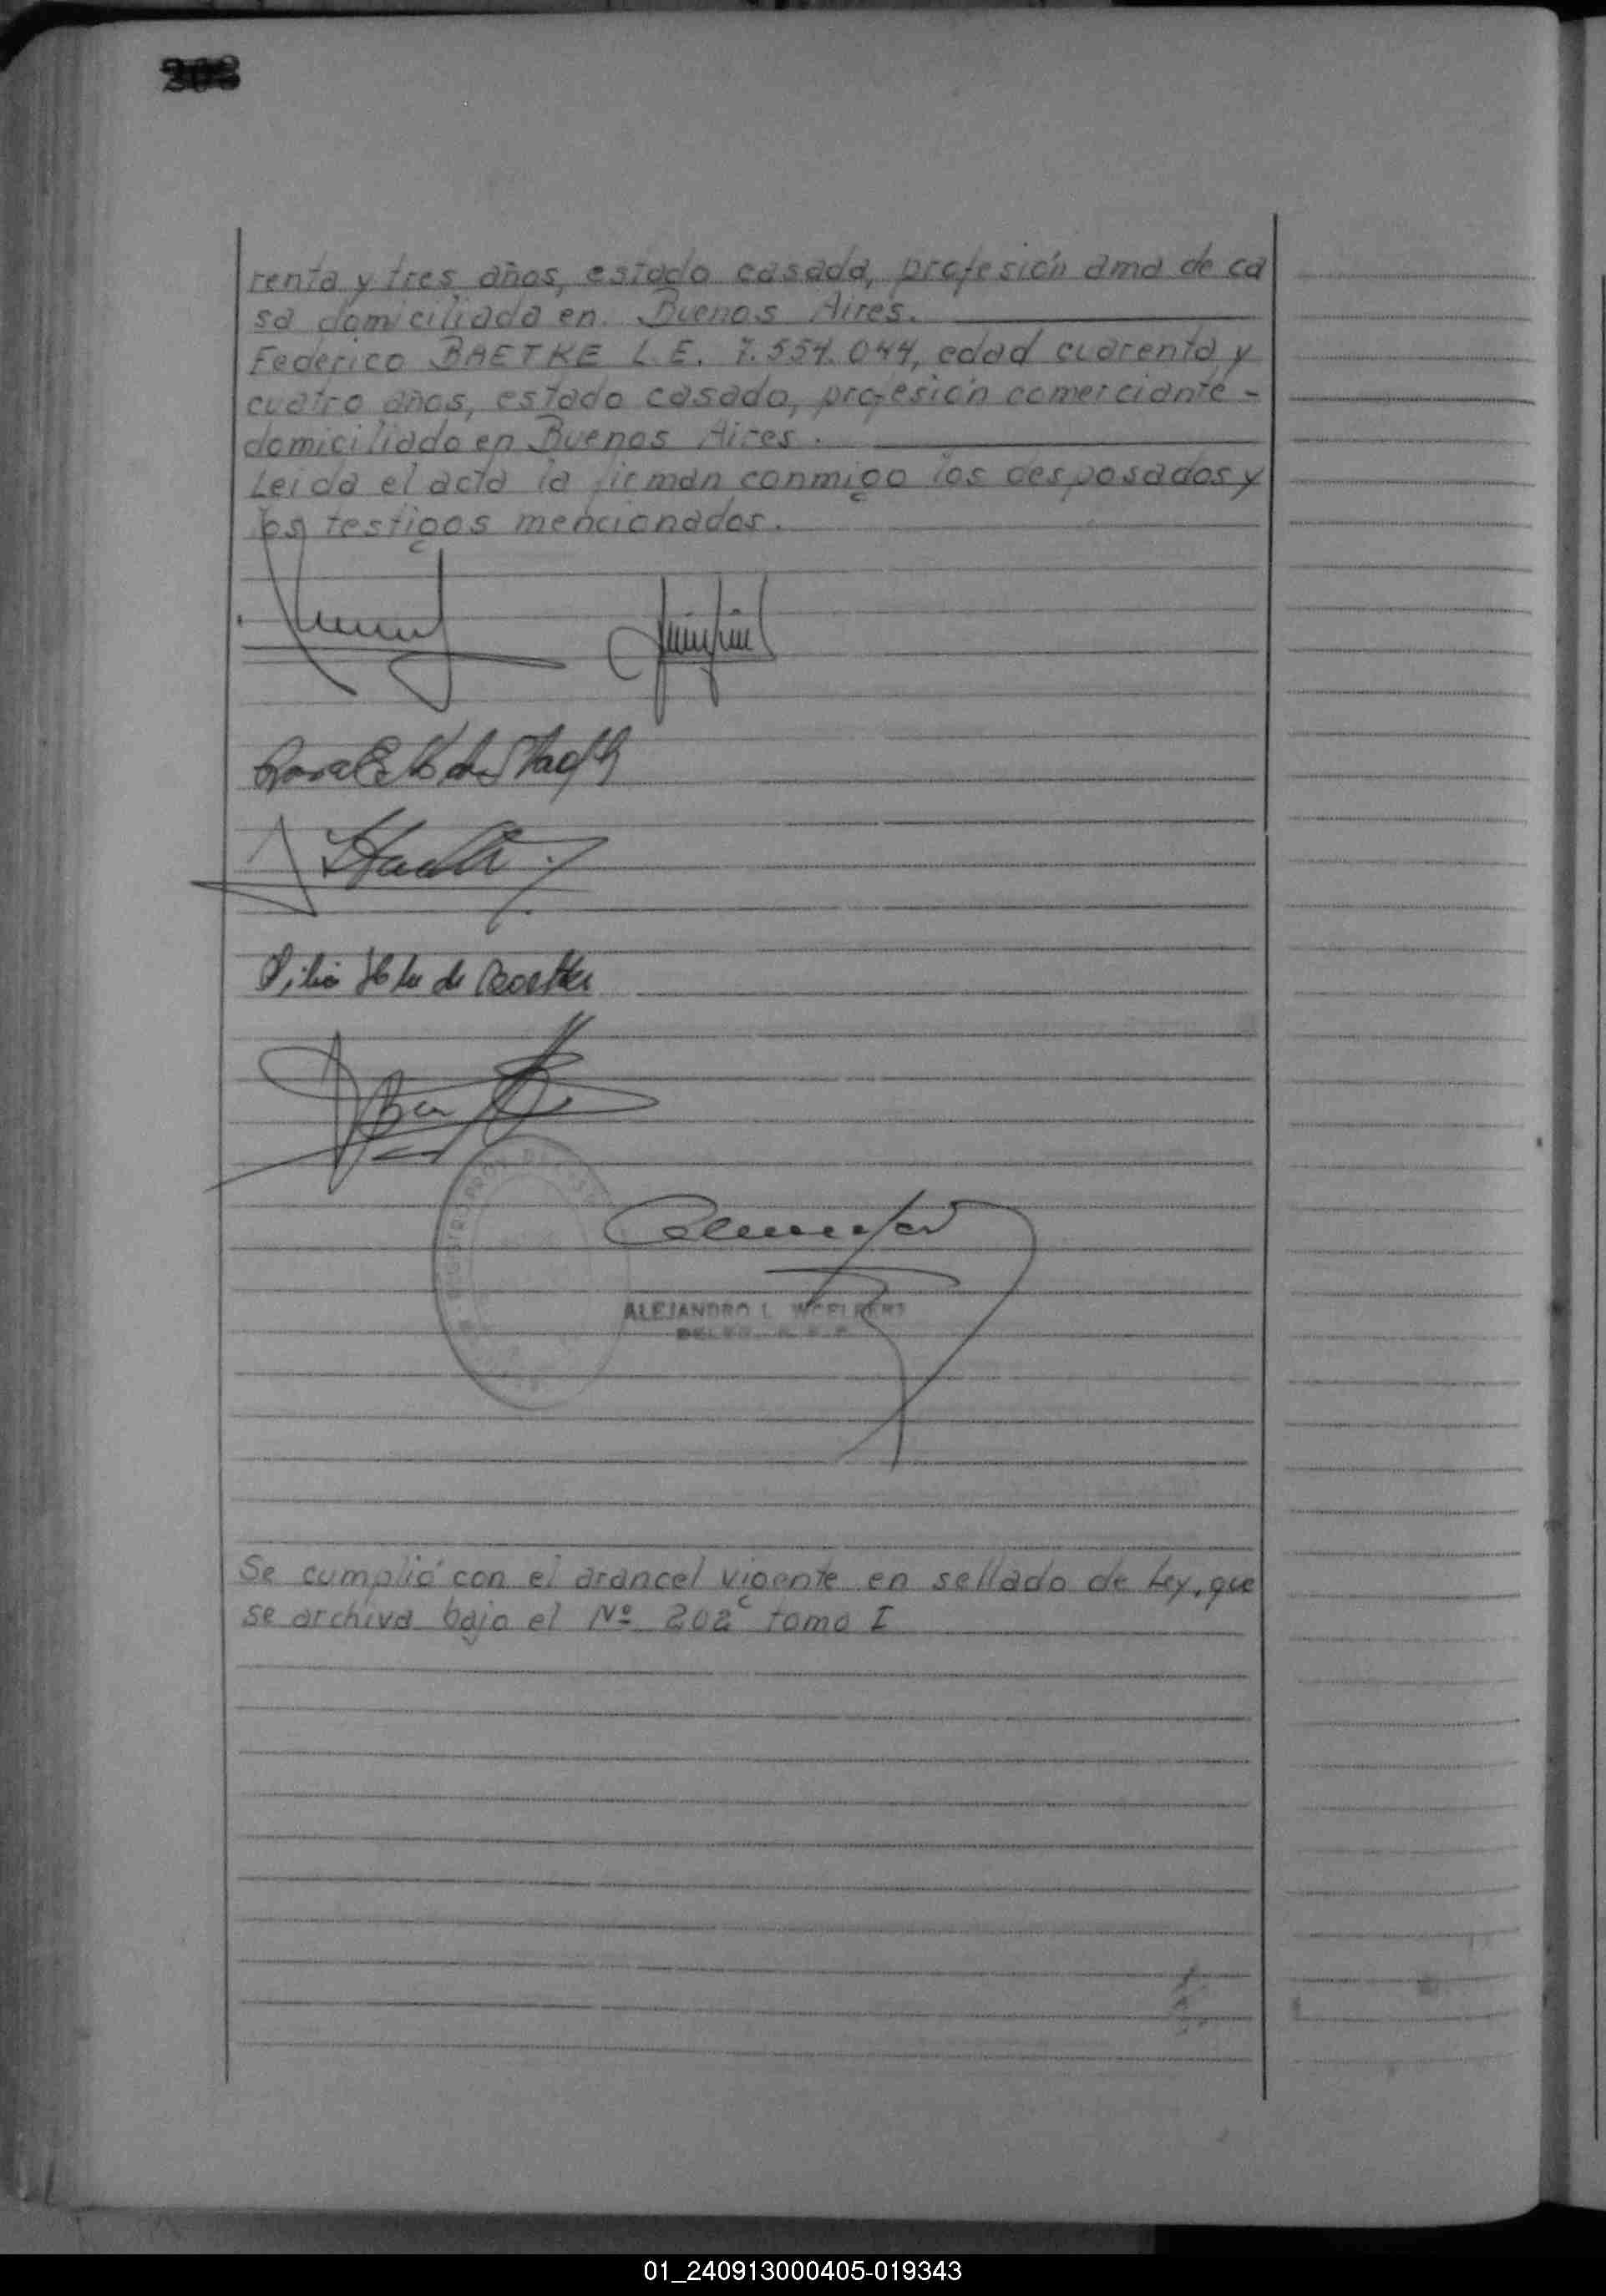 renta y tres años, estado casada, profesión ama de ca
sa domiciliada en Buenos Aires.
Federico BAETKE L.E. 7.554.044, edad cuarenta y
cuatro años, estado casado, profesión comerciante -
domiciliado en Buenos Aires.
Leida el acta la firman conmigo los desposados y
los testigos mencionados.
ALEJANDRO L.
Se cumplió con el arancel vigente en sellado de Ley, que
se archiva bajo el Nº 202 tomo I
01_240913000405-019343